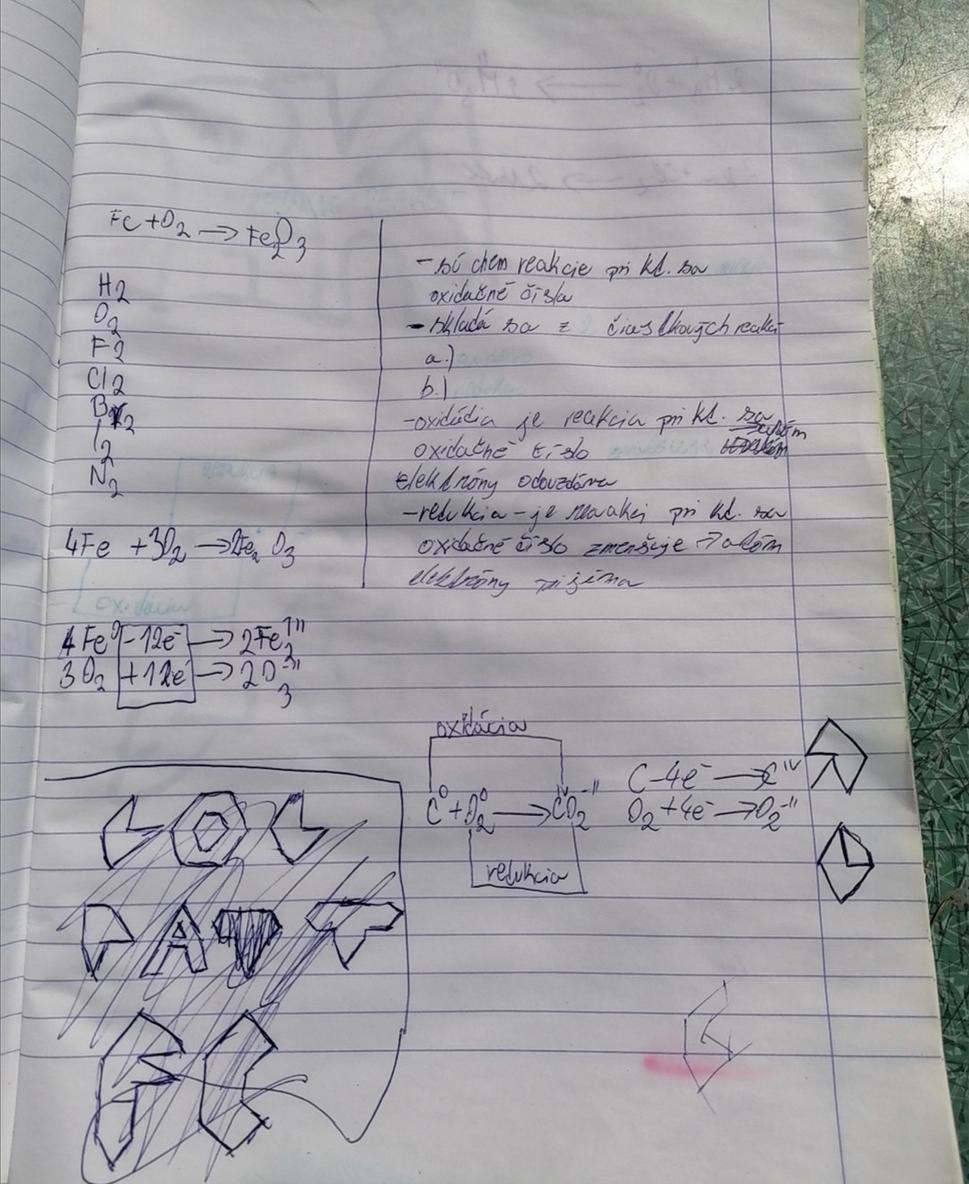 Fe + O2 → Fe2O3
H2
O2
F2
Cl2
Br2
I2
N2
4Fe + 3O2 → 2Fe2 O3
4Fe⁰ - 12e⁻ → 2Fe2ᴵᴵᴵ
3O2 + 12e⁻ → 2O3⁻ᴵᴵ
- sú chem reakcie pri kt. sa
oxidačné čísla
- skladá sa z čiastkových reakcí
a.)
b.)
- oxidácia je reakcia pri kt. sa
oxidačné číslo → atóm
elektróny odovzdáva
- redukcia - je pri kt. sa
oxidačné číslo zmenšuje → atóm
elektróny
oxidácia
C⁰ + O2⁰ → Cᴵⱽ O2⁻ᴵᴵ
redukcia
C - 4e⁻ → Cᴵⱽ
O2 + 4e⁻ → O2⁻ᴵᴵ
oxidácia